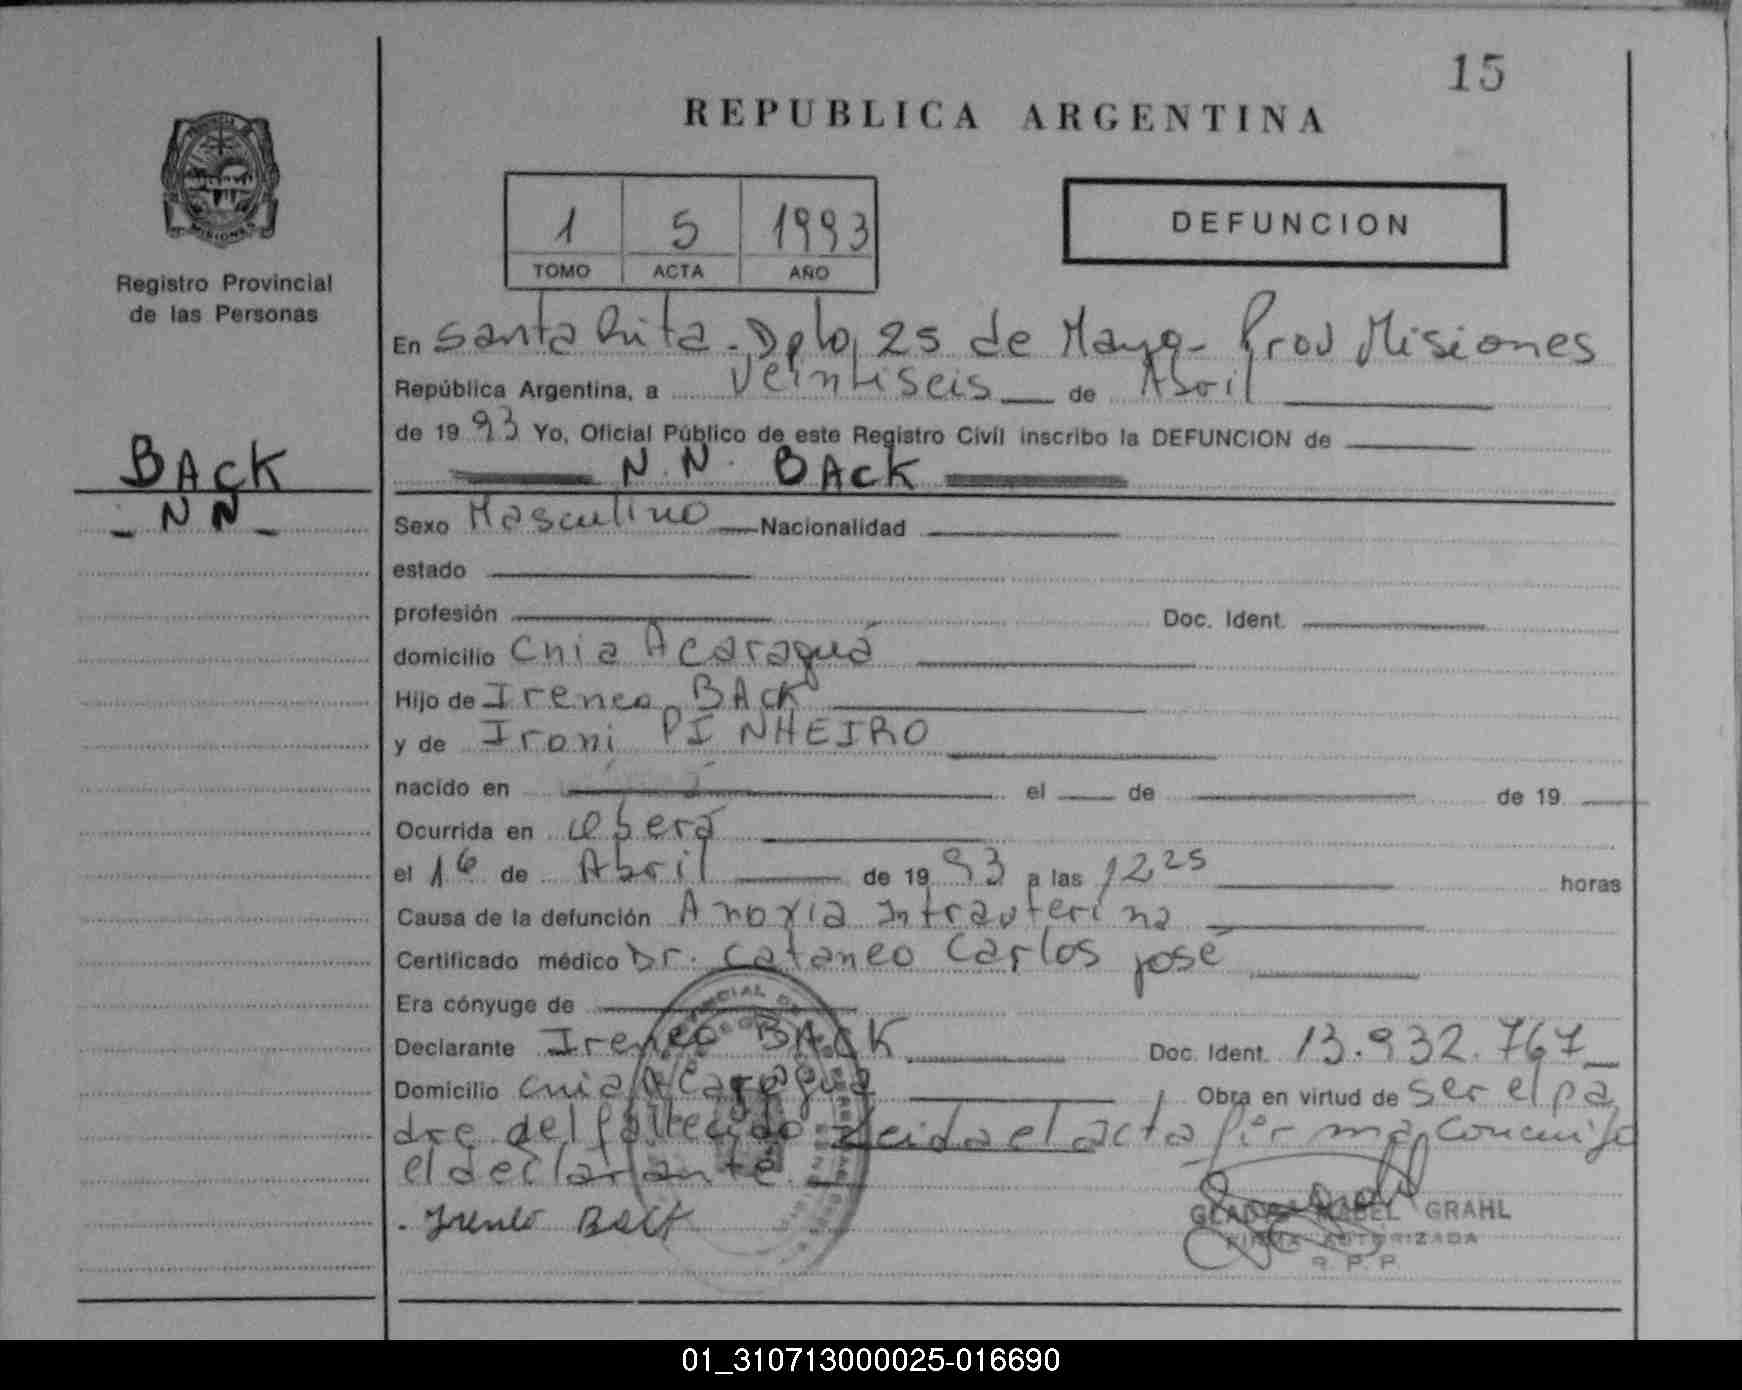 15
REPUBLICA ARGENTINA
1 5 1993
TOMO ACTA AÑO
DEFUNCION
Registro Provincial
de las Personas
En Santa Rita - Dpto, 25 de Mayo - Prov Misiones
República Argentina, a veintiseis de Abril
de 1993 Yo, Oficial Público de este Registro Civil inscribo la DEFUNCION de
N.N. BACK
BACK
- NN -
Sexo Masculino Nacionalidad
estado
profesión Doc. Ident.
domicilio Cnia Acaraguá
Hijo de Ireneo BACK
y de Ironi PINHEIRO
nacido en el de de 19
Ocurrida en Oberá
el 16 de Abril de 1993 a las 12,25 horas
Causa de la defunción Anoxia Intrauterina
Certificado médico Dr. Cataneo Carlos José
Era cónyuge de
Declarante Ireneo BACK Doc. Ident. 13.932.767
Domicilio Cnia Acaraguá Obra en virtud de ser el pa
dre del fallecido Leida el acta firma conmigo
el declarante
Ireneo Back
GLADIS MABEL GRAHL
FIRMA AUTORIZADA
R. P. P.
01_310713000025-016690